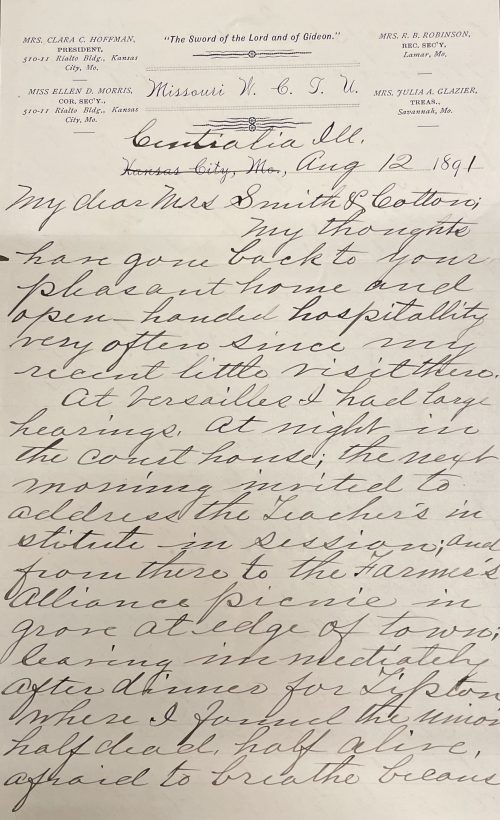 MRS. CLARA C. HOFFMAN,
PRESIDENT,
510-11 Rialto Bldg., Kansas
City, Mo.
MISS ELLEN D. MORRIS,
COR. SEC'Y.,
510-11 Rialto Bldg., Kansas
City, Mo.
"The Sword of the Lord and of Gideon."
Missouri W. C. T. U.
MRS. R. B. ROBINSON,
REC. SEC'Y,
Lamar, Mo.
MRS. JULIA A. GLAZIER,
TREAS.,
Savannah, Mo.
Centralia Ill.
Kansas City, Mo., Aug 12 1891
My dear Mrs Smith & Cotton;
My thoughts
have gone back to your
pleasant home and
open-handed hospitallity
very often since my
recent little visit there.
At Versailles I had large
hearings. At night in
the court house; the next
morning invited to
address the Teacher's in
stitute in session; and
from there to the Farmer's
Alliance picnic in
grove at edge of town;
leaving immediately
after dinner for Tipton
where I found the union
half dead, half alive,
afraid to breathe becaus